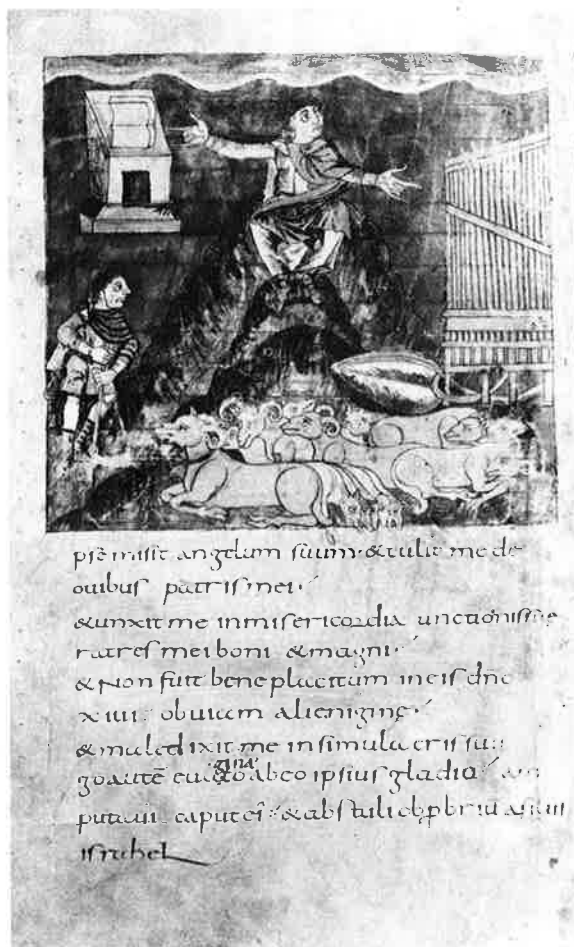 ipse misit angelum suum & tulit me de
ouibus patris mei
& unxit me in misericordia unctionis suę
ratres mei boni & magni
& Non fuit bene placitum in eis dnō
xiui obuiam alieniginę
& maledixit me in simulacris suis
go autē euagina&o ab eo ipsius gladio am
putaui caput ei & abstuli obpbriū
israhel